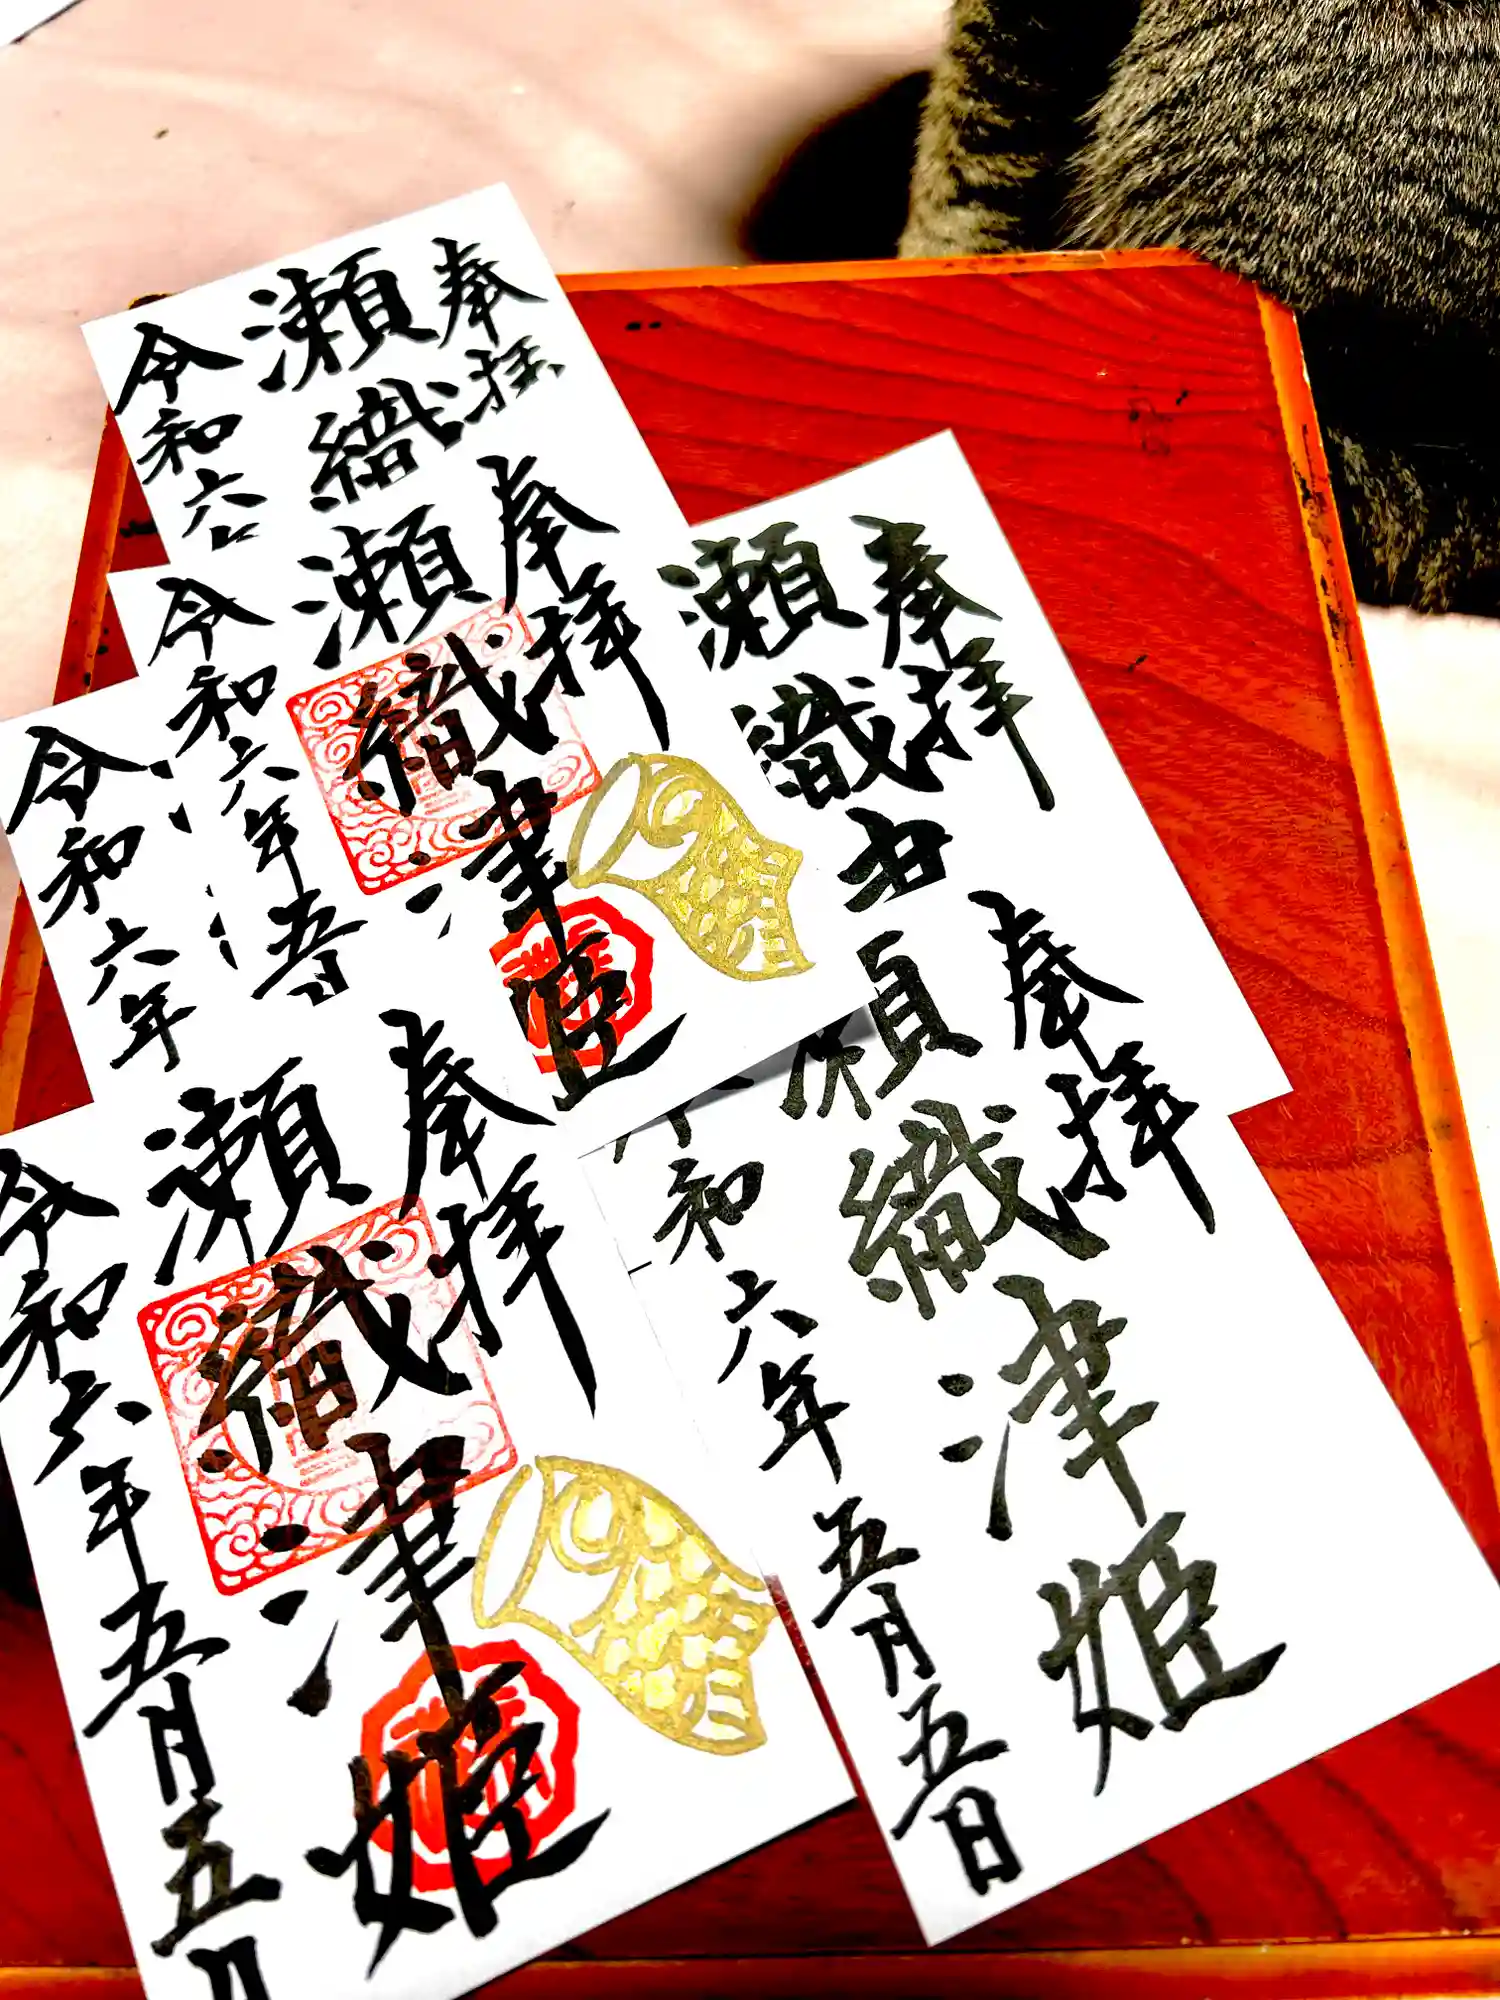 奉拝
瀬織
令和六
奉拝
瀬織津姫
令和六年五
奉拝
瀬織
令和六年
奉拝
瀬織津姫
令和六年五月五日
奉拝
瀬織津姫
和六年五月五日